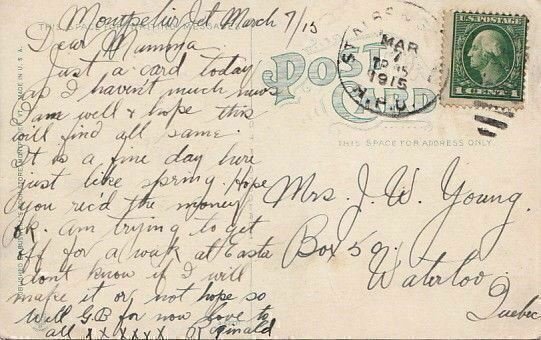 Montpelier Jct March 7/15
Dear Mamma
Just a card today
as I havent much news
I am well & hope this
will find all same.
It is a fine day here
just like spring. Hope
you rec'd the money
ok. am trying to get
off for a week at Easter
dont know if I will
make it or not hope so
Well G.B for now love to
all x x x x x Reginald
THIS SPACE FOR WRITING MESSAGES
POST CARD
THIS SPACE FOR ADDRESS ONLY.
MAR
7
1915
R.P.O.
U.S. POSTAGE
1 CENT 1
Mrs. J. W. Young.
Box 59.
Waterloo
Quebec
MADE IN U.S.A.